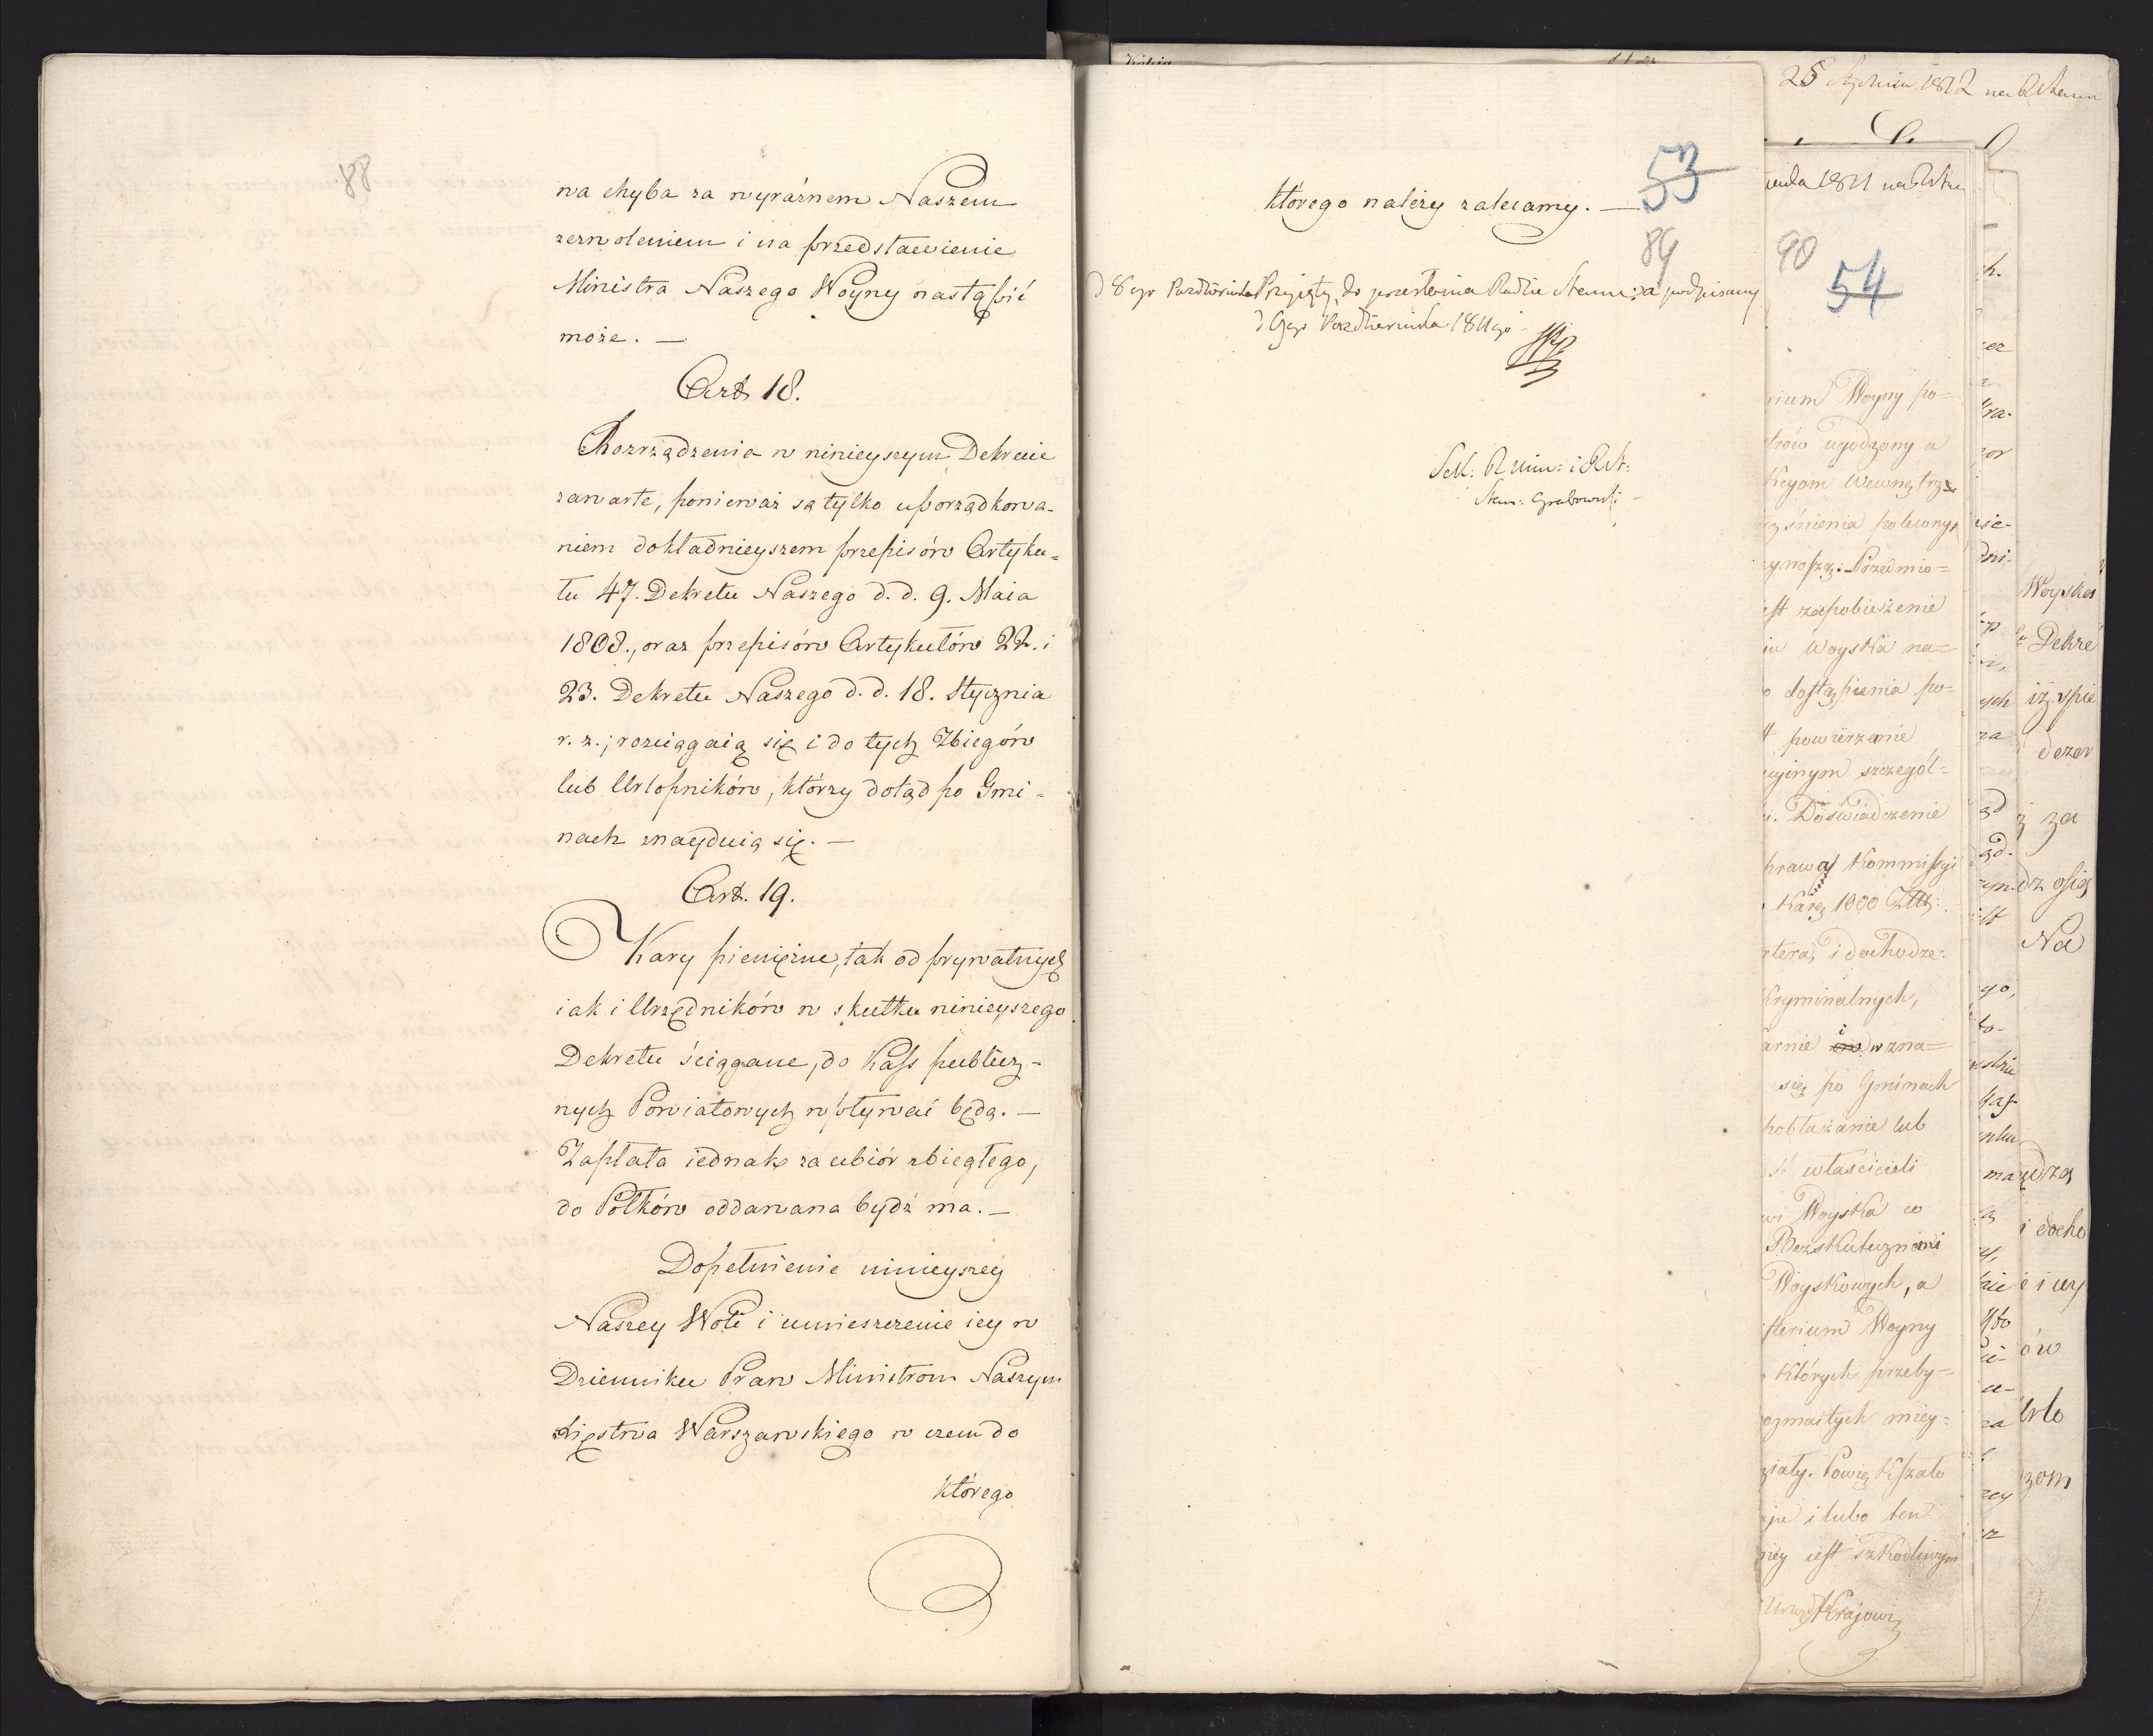 88
wa chyba za wyráznem Naszem
zezwoleniem i na przedstawienie
Ministra Naszego Woyny nastąpić
może. —
Art 18.
Rozrządzenia w ninieyszym Dekrecie
zawarte, ponieważ są tylko uporządkowa-
niem dokładnieyszem przepisów Artyku=
łu 47. Dekretu Naszego d. d. 9. Maia
1808., oraz przepisów Artykułów 22. i
23. Dekretu Naszego d. d. 18. Stycznia
r. z.; rozciągaią się i do tych Zbiegów
lub Urlopników, którzy dotąd po Gmi=
nach znayduią się. —
Art. 19.
Kary pieniężne, tak od prywatnych
iak i Urzędników w skutku ninieyszego
Dekretu ściągane, do Kass publicz-
nych Powiatowych wpływać będą. —
Zapłata iednak za ubiór zbiegłego,
do Półków oddawana bydź ma. —
Dopełnienie ninieyszey
Naszey Woli i umieszczenie iey w
Dzienniku Praw Ministrom Naszym
Xięstwa Warszawskiego w czem do
którego
53
którego należy zalecamy. —
89
d 8go Października Przyięty, do przesłania Radzie Stanu; a podpisany
d 9go Października 1811go
Sekr: R Min: i RSt:
Stan: Grabowski
25 Stycznia 1812 na R Stanu
1811 na RStu
90
54
rium Woyny po=
trów ugodzony a
Kcyom Wewnętrz
. Przedmio=
est zapobieżenie
iu Woyska na=
o dostąpienia po=
powierzenie
szczegól=
Doświadczenie
prawa Kommissyi
Karę 1000 Złł:
rtera, i dochodze:
Kryminalnych,
arnie i wzna=
się po Gminach
pobłażanie lub
ść właścicieli
wi Woyska co
Bezskutecznemi
Woyskowych, a
sterium Woyny
Których przeby=
ozmaitych miey=
ziały. Powiększało
i lubo ten
iest szkodliwym
Krajowi
Woyska
Dekre
dezer
ż za
Na
i docho
ów
zom